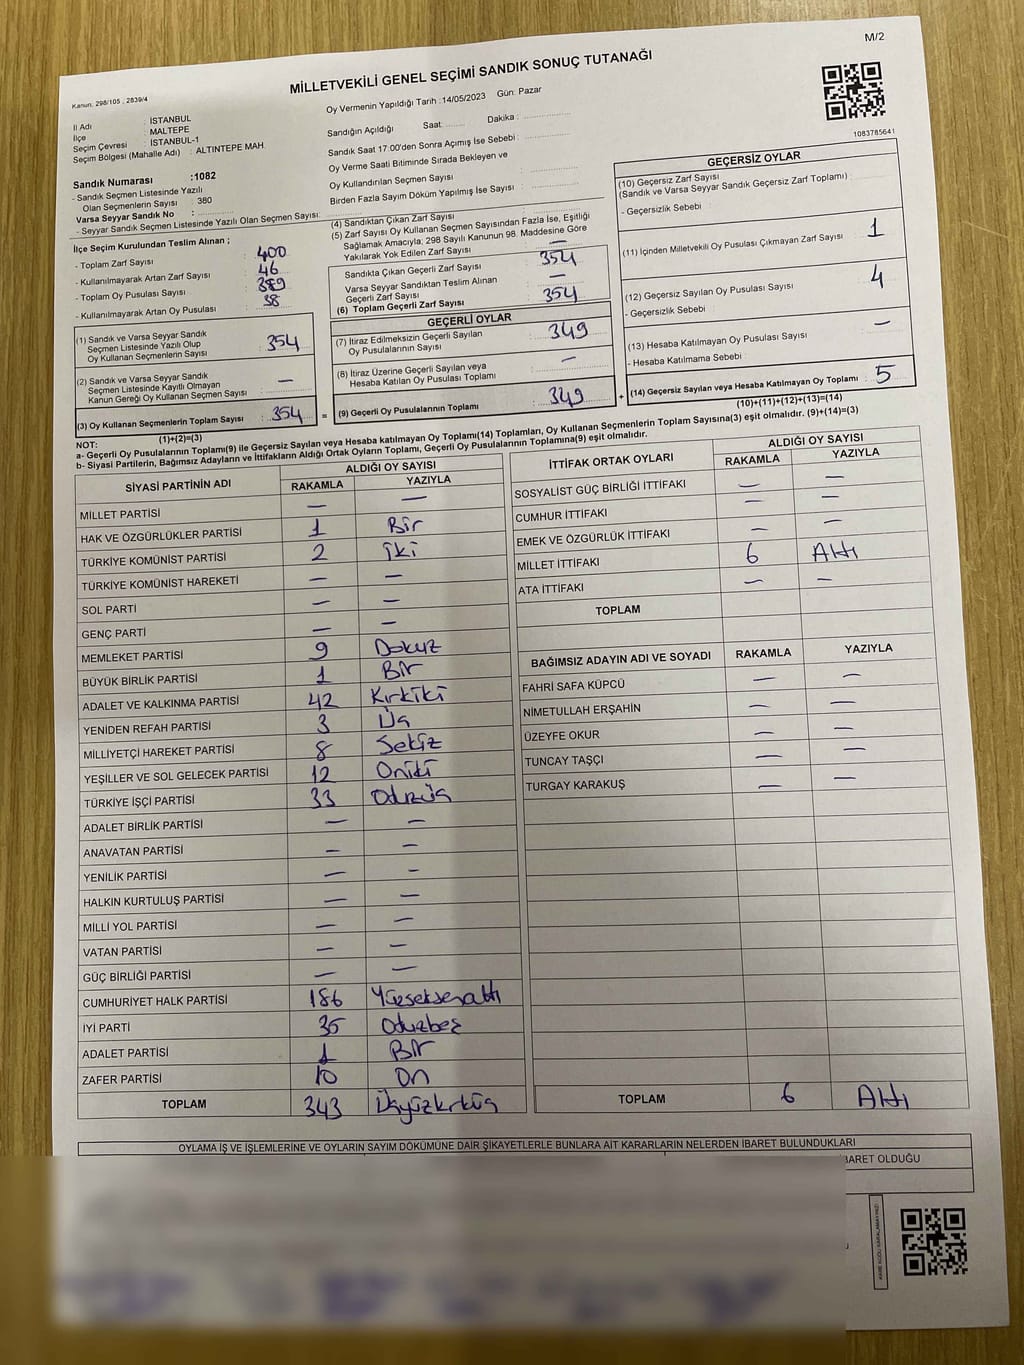 M/2
MİLLETVEKİLİ GENEL SEÇİMİ SANDIK SONUÇ TUTANAĞI
Kanun: 298/105 , 2839/4
İl Adı : İSTANBUL
İlçe : MALTEPE
Seçim Çevresi : İSTANBUL-1
Seçim Bölgesi (Mahalle Adı) : ALTINTEPE MAH.
Oy Vermenin Yapıldığı Tarih :14/05/2023 Gün: Pazar
Sandığın Açıldığı Saat: Dakika :
Sandık Saat 17:00'den Sonra Açımış İse Sebebi :
Oy Verme Saati Bitiminde Sırada Bekleyen ve
Oy Kullandırılan Seçmen Sayısı :
Birden Fazla Sayım Döküm Yapılmış İse Sayısı :
1083785641
Sandık Numarası :1082
- Sandık Seçmen Listesinde Yazılı
Olan Seçmenlerin Sayısı : 380
Varsa Seyyar Sandık No :
- Seyyar Sandık Seçmen Listesinde Yazılı Olan Seçmen Sayısı:
İlçe Seçim Kurulundan Teslim Alınan ;
- Toplam Zarf Sayısı : 400
- Kullanılmayarak Artan Zarf Sayısı : 46
- Toplam Oy Pusulası Sayısı : 389
- Kullanılmayarak Artan Oy Pusulası : 38
(1) Sandık ve Varsa Seyyar Sandık
Seçmen Listesinde Yazılı Olup
Oy Kullanan Seçmenlerin Sayısı : 354
(2) Sandık ve Varsa Seyyar Sandık
Seçmen Listesinde Kayıtlı Olmayan
Kanun Gereği Oy Kullanan Seçmen Sayısı : —
(3) Oy Kullanan Seçmenlerin Toplam Sayısı : 354
(1)+(2)=(3)
(4) Sandıktan Çıkan Zarf Sayısı :
(5) Zarf Sayısı Oy Kullanan Seçmen Sayısından Fazla İse, Eşitliği
Sağlamak Amacıyla; 298 Sayılı Kanunun 98. Maddesine Göre
Yakılarak Yok Edilen Zarf Sayısı : —
Sandıkta Çıkan Geçerli Zarf Sayısı : 354
Varsa Seyyar Sandıktan Teslim Alınan
Geçerli Zarf Sayısı : —
(6) Toplam Geçerli Zarf Sayısı : 354
GEÇERLİ OYLAR
(7) İtiraz Edilmeksizin Geçerli Sayılan
Oy Pusulalarının Sayısı : 349
(8) İtiraz Üzerine Geçerli Sayılan veya
Hesaba Katılan Oy Pusulası Toplamı : —
= (9) Geçerli Oy Pusulalarının Toplamı : 349
GEÇERSİZ OYLAR
(10) Geçersiz Zarf Sayısı
(Sandık ve Varsa Seyyar Sandık Geçersiz Zarf Toplamı) :
- Geçersizlik Sebebi :
(11) İçinden Milletvekili Oy Pusulası Çıkmayan Zarf Sayısı : 1
(12) Geçersiz Sayılan Oy Pusulası Sayısı : 4
- Geçersizlik Sebebi :
(13) Hesaba Katılmayan Oy Pusulası Sayısı : —
- Hesaba Katılmama Sebebi :
+ (14) Geçersiz Sayılan veya Hesaba Katılmayan Oy Toplamı : 5
(10)+(11)+(12)+(13)=(14)
NOT:
a- Geçerli Oy Pusulalarının Toplamı(9) ile Geçersiz Sayılan veya Hesaba katılmayan Oy Toplamı(14) Toplamları, Oy Kullanan Seçmenlerin Toplam Sayısına(3) eşit olmalıdır. (9)+(14)=(3)
b- Siyasi Partilerin, Bağımsız Adayların ve İttifakların Aldığı Ortak Oyların Toplamı, Geçerli Oy Pusulalarının Toplamına(9) eşit olmalıdır.
SİYASİ PARTİNİN ADI ALDIĞI OY SAYISI
RAKAMLA YAZIYLA
MİLLET PARTİSİ — —
HAK VE ÖZGÜRLÜKLER PARTİSİ 1 Bir
TÜRKİYE KOMÜNİST PARTİSİ 2 iki
TÜRKİYE KOMÜNİST HAREKETİ — —
SOL PARTİ — —
GENÇ PARTİ — —
MEMLEKET PARTİSİ 9 Dokuz
BÜYÜK BİRLİK PARTİSİ 1 Bir
ADALET VE KALKINMA PARTİSİ 42 Kırkiki
YENİDEN REFAH PARTİSİ 3 Üç
MİLLİYETÇİ HAREKET PARTİSİ 8 Sekiz
YEŞİLLER VE SOL GELECEK PARTİSİ 12 Oniki
TÜRKİYE İŞÇİ PARTİSİ 33 Otuzüç
ADALET BİRLİK PARTİSİ — —
ANAVATAN PARTİSİ — —
YENİLİK PARTİSİ — —
HALKIN KURTULUŞ PARTİSİ — —
MİLLİ YOL PARTİSİ — —
VATAN PARTİSİ — —
GÜÇ BİRLİĞİ PARTİSİ — —
CUMHURİYET HALK PARTİSİ 186 Yüzseksenaltı
İYİ PARTİ 35 Otuzbeş
ADALET PARTİSİ 1 Bir
ZAFER PARTİSİ 10 On
TOPLAM 343 Üçyüzkırküç
İTTİFAK ORTAK OYLARI ALDIĞI OY SAYISI
RAKAMLA YAZIYLA
SOSYALİST GÜÇ BİRLİĞİ İTTİFAKI — —
CUMHUR İTTİFAKI — —
EMEK VE ÖZGÜRLÜK İTTİFAKI — —
MİLLET İTTİFAKI 6 Altı
ATA İTTİFAKI — —
TOPLAM
BAĞIMSIZ ADAYIN ADI VE SOYADI RAKAMLA YAZIYLA
FAHRİ SAFA KÜPCÜ — —
NİMETULLAH ERŞAHİN — —
ÜZEYFE OKUR — —
TUNCAY TAŞÇI — —
TURGAY KARAKUŞ — —
TOPLAM 6 Altı
OYLAMA İŞ VE İŞLEMLERİNE VE OYLARIN SAYIM DÖKÜMÜNE DAİR ŞİKAYETLERLE BUNLARA AİT KARARLARIN NELERDEN İBARET BULUNDUKLARI
BARET OLDUĞU